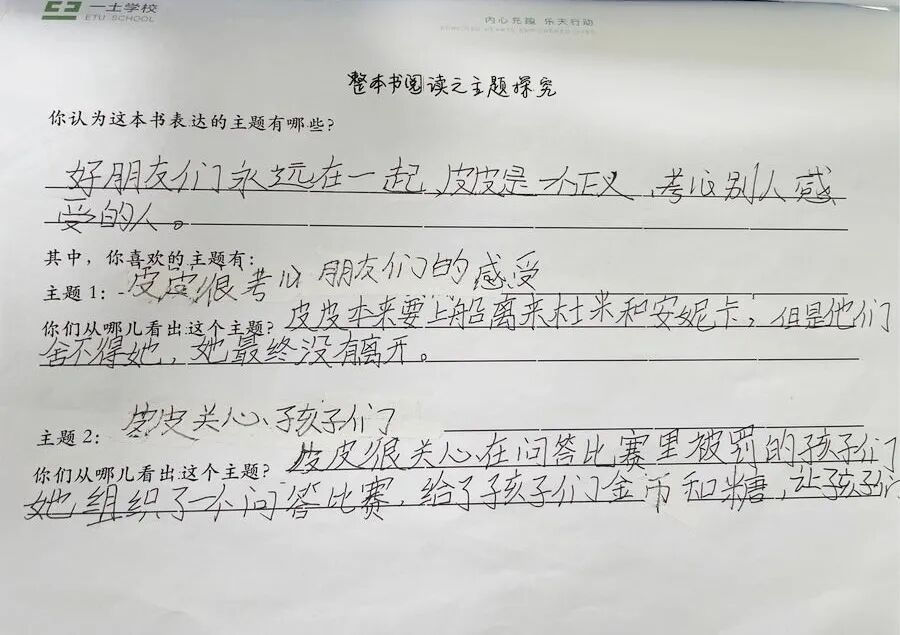 一土学校
ETU SCHOOL
内心充盈 乐天行动
整本书阅读之主题探究
你认为这本书表达的主题有哪些?
好朋友们永远在一起,皮皮是一个正义,考心别人感
受的人。
其中,你喜欢的主题有:
主题1: 皮皮很考心朋友们的感受
你们从哪儿看出这个主题? 皮皮本来要上船离来杜米和安妮卡,但是他们
舍不得她,她最终没有离开。
主题2: 皮皮关心孩子们
你们从哪儿看出这个主题? 皮皮很关心在问答比赛里被罚的孩子们
她组织了一个问答比赛,给了孩子们金币和糖,让孩子们